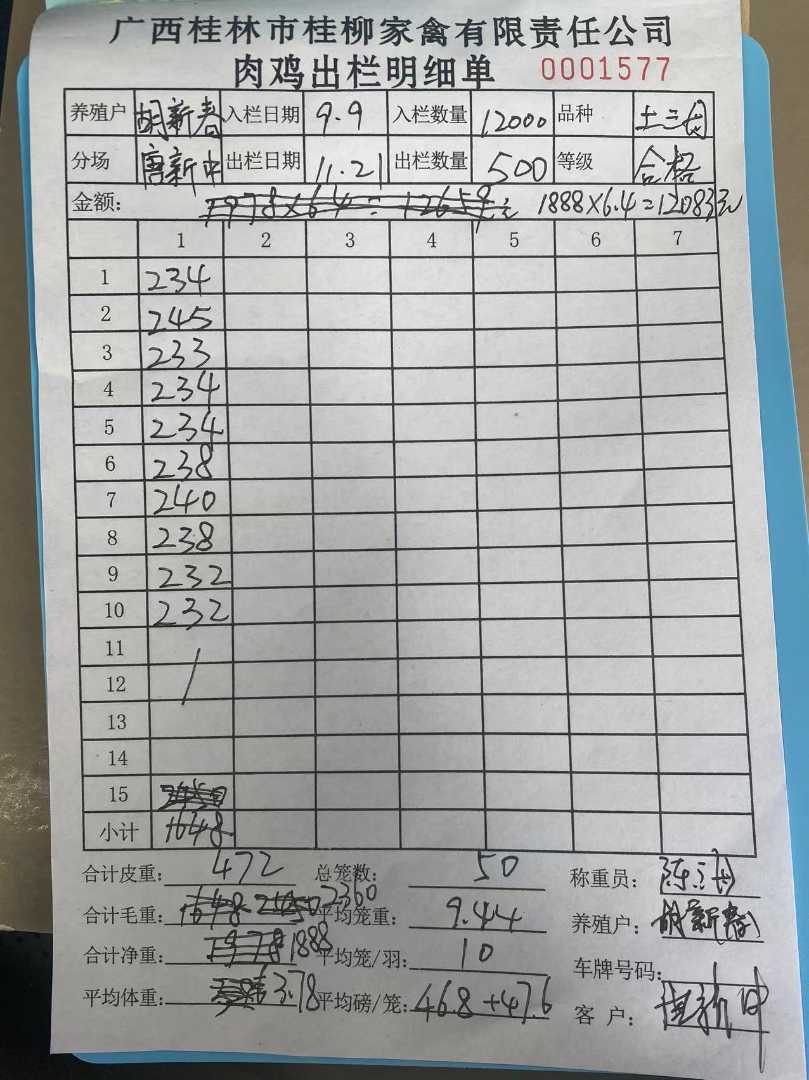 广西桂林市桂柳家禽有限责任公司
肉鸡出栏明细单 0001577
养殖户 胡新春 入栏日期 9.9 入栏数量 12000 品种 土三
分场 唐新中 出栏日期 11.21 出栏数量 500 等级 合格
金额: 1978×6.4=12659元 1888×6.4=12083元
1 2 3 4 5 6 7
1 234
2 245
3 233
4 234
5 234
6 238
7 240
8 238
9 232
10 232
11
12
13
14
15
小计 1648
合计皮重: 472 总笼数: 50 称重员:
合计毛重: 1648 2450 2360 平均笼重: 9.44 养殖户: 胡新春
合计净重: 1978 1888 平均笼/羽: 10 车牌号码:
平均体重: 3.78 平均磅/笼: 46.8+47.6 客户: